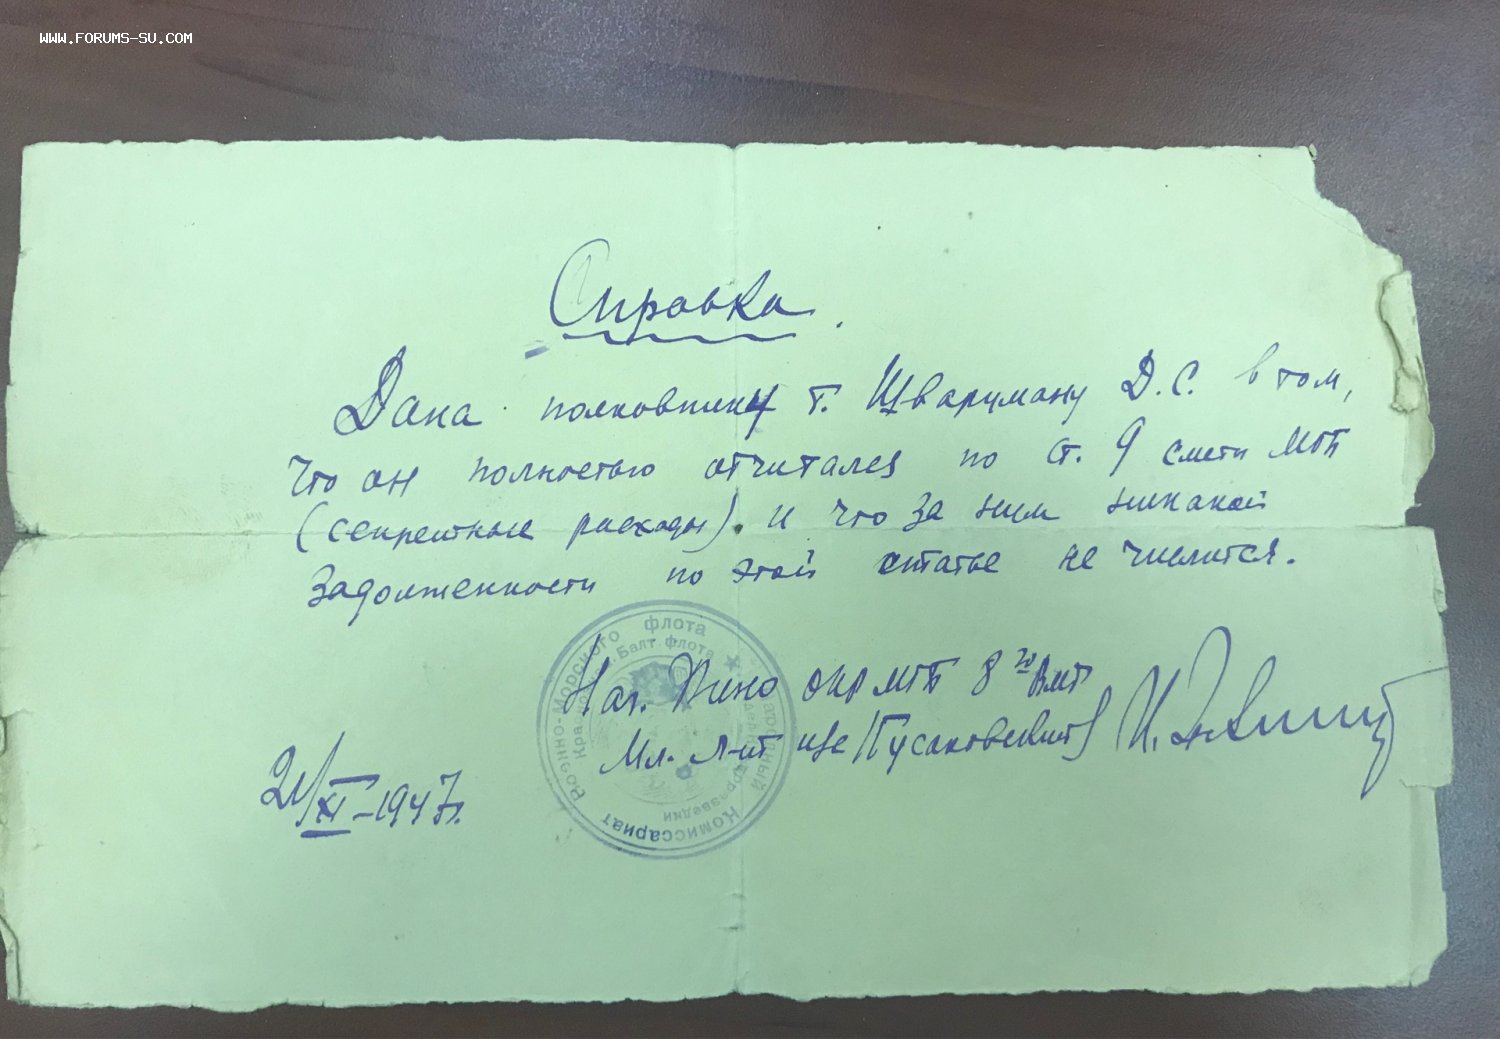 WWW.FORUMS-SU.COM
Справка.
Дана полковнику т. Шварцману Д.С. в том,
что он полностью отчитался по ст. 9 сметы МГБ
(секретные расходы). и что за ним никакой
задолженности по этой статье не числится.
Нач. ОКР МГБ 8го ВМФ
Мл. л-нт
21/XI-1947г.
Военно-Морского флота
Балт. флота
Комиссариат
разведки